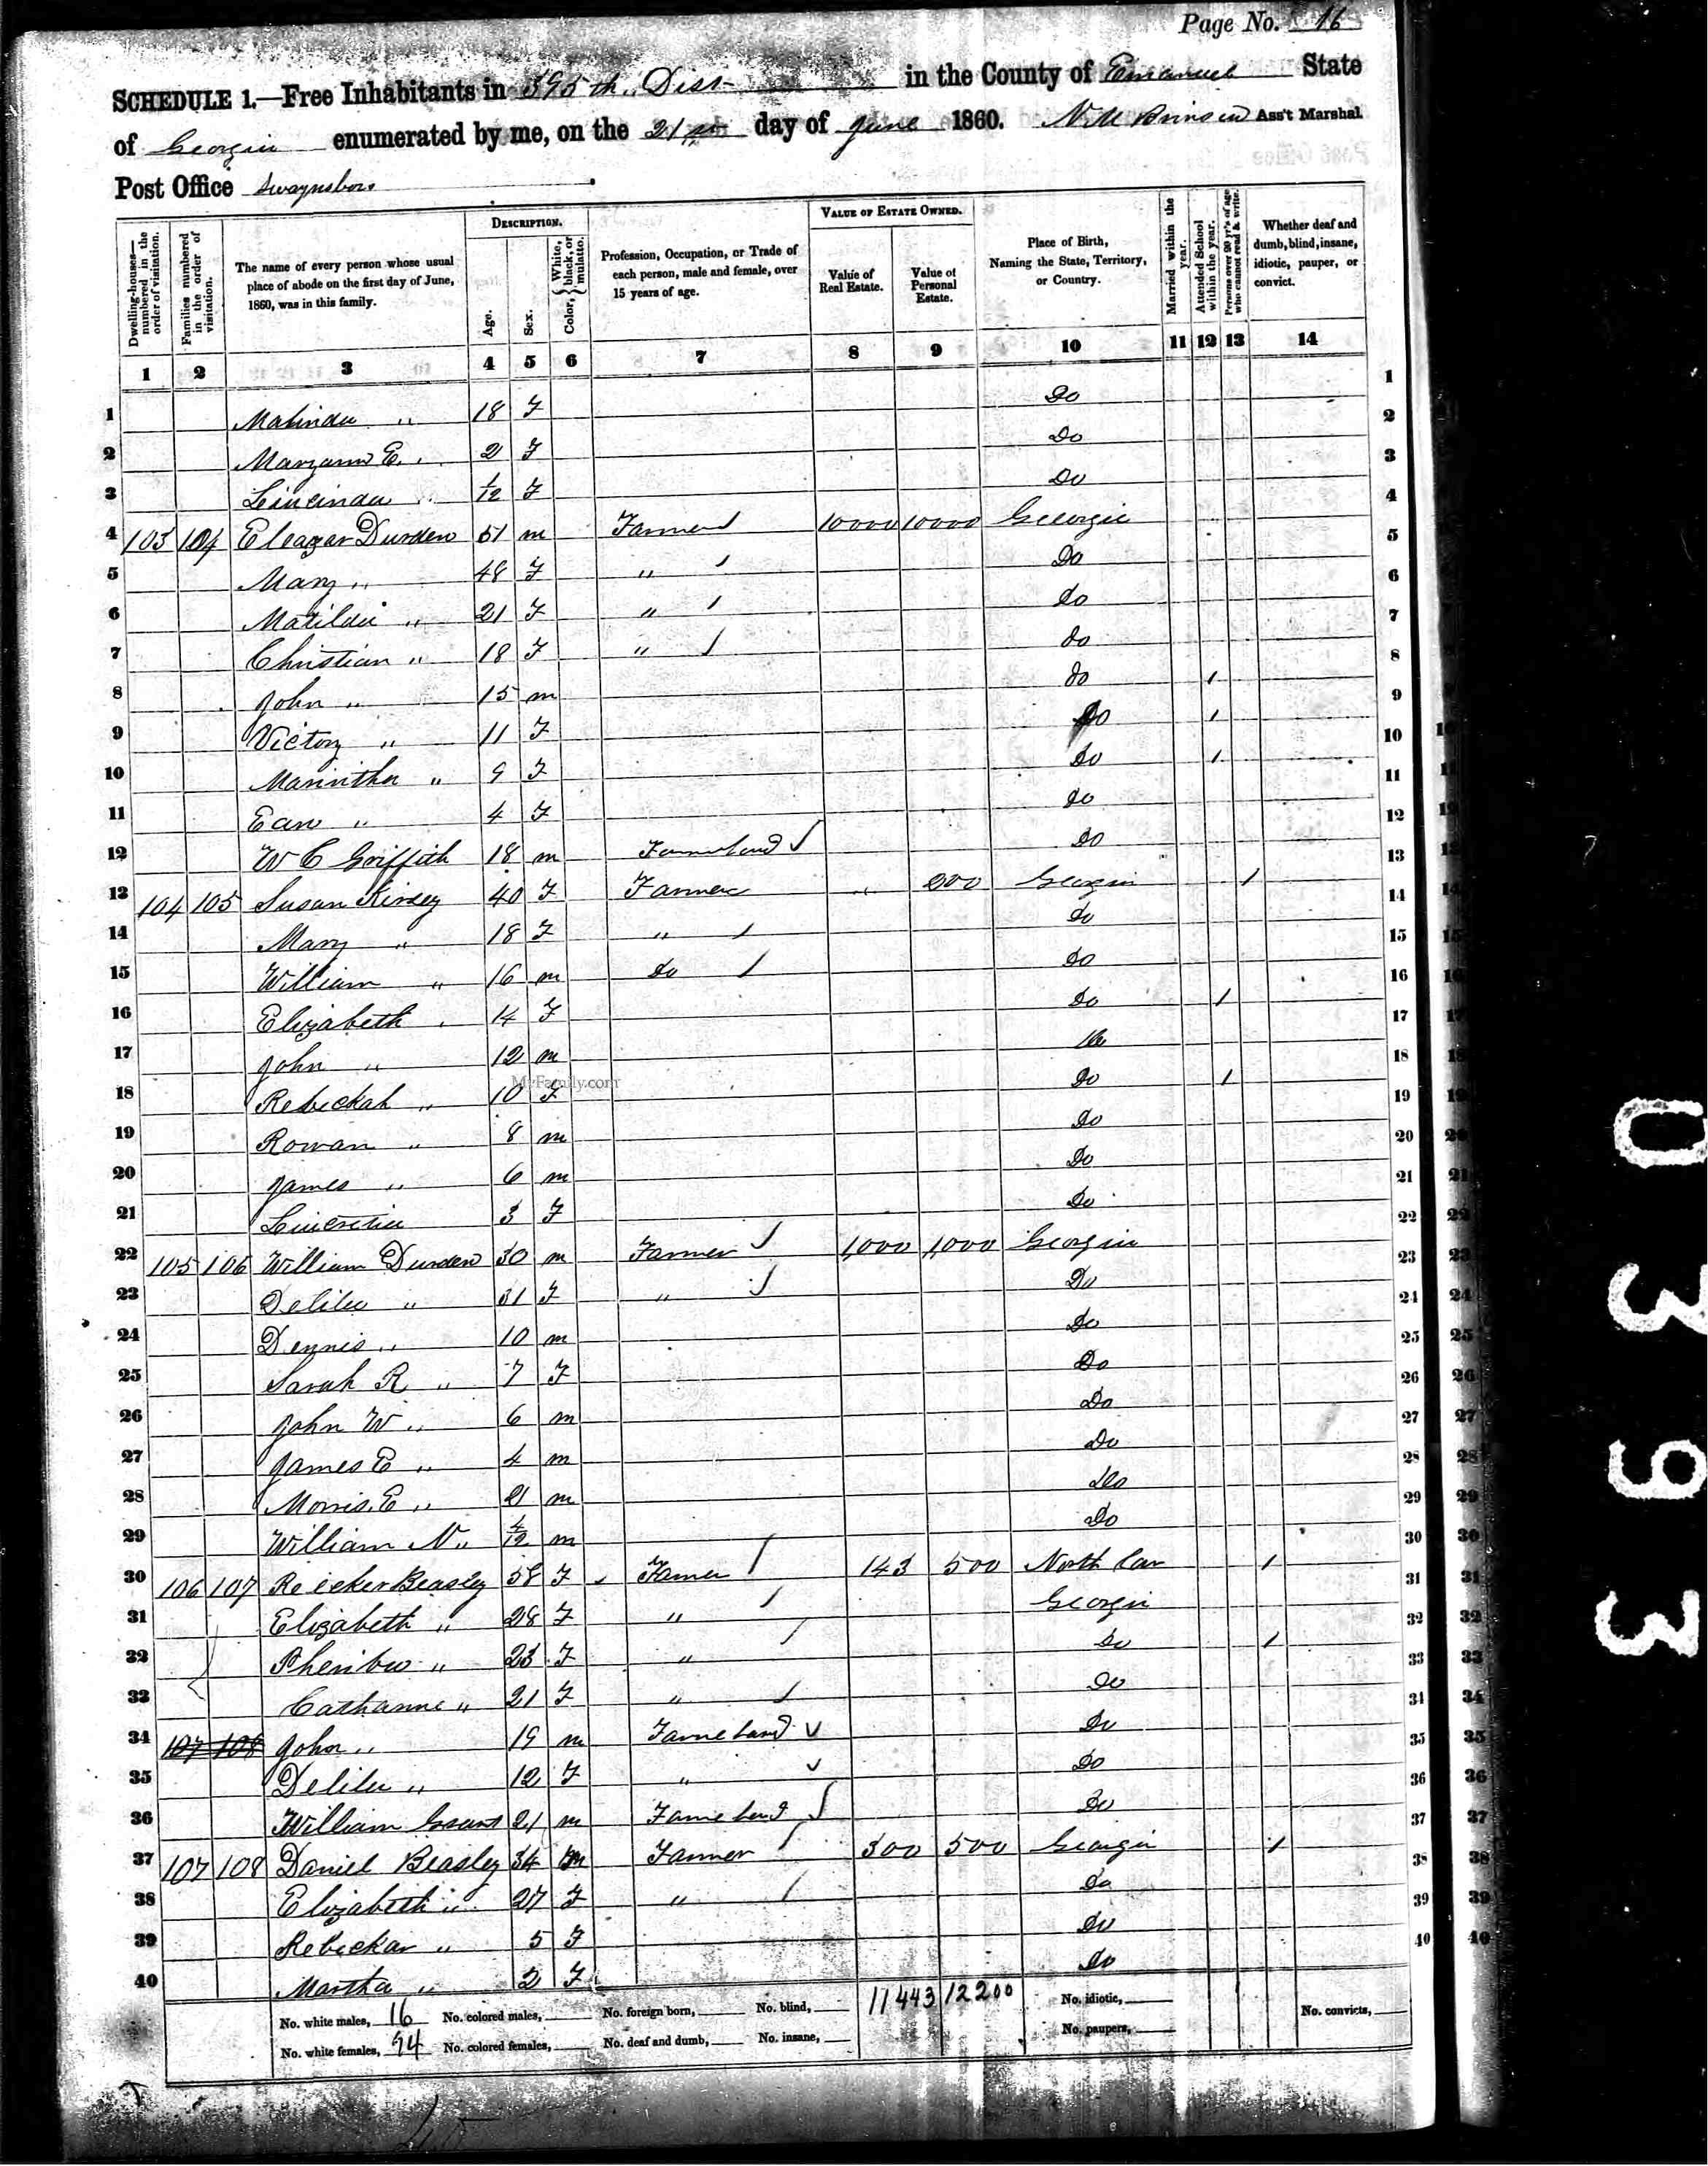 Page No. 16
SCHEDULE 1.—Free Inhabitants in 395th Dist in the County of Emanuel State
of Georgia enumerated by me, on the 21st day of June 1860. Ass't Marshal
Post Office Swaynsboro
Dwelling-houses—numbered in the order of visitation.
Families numbered in the order of visitation.
The name of every person whose usual place of abode on the first day of June, 1860, was in this family.
DESCRIPTION.
Age.
Sex.
Color, { White, black, or mulatto.
Profession, Occupation, or Trade of each person, male and female, over 15 years of age.
VALUE OF ESTATE OWNED.
Value of Real Estate.
Value of Personal Estate.
Place of Birth, Naming the State, Territory, or Country.
Married within the year.
Attended School within the year.
Persons over 20 yr's of age who cannot read & write.
Whether deaf and dumb, blind, insane, idiotic, pauper, or convict.
1 2 3 4 5 6 7 8 9 10 11 12 13 14
1 Malinda " 18 F Do 1
2 Maryann E. " 2 F Do 2
3 Lucinda " 1/12 F Do 3
4 103 104 Eleazar Durden 51 m Farmer 10000 10000 Georgia 4
5 Mary " 48 F " Do 5
6 Matilda " 21 F " do 6
7 Christian " 18 F " do 7
8 John " 15 m do 1 8
9 Victory " 11 F Do 1 9
10 " 9 F Do 1 10
11 " 4 F do 11
12 W C Griffith 18 m Do 12
13 104 105 Susan Kirsey 40 F Farmer " 200 Georgia 1 13
14 Mary " 18 F " do 14
15 William " 16 m do do 15
16 Elizabeth " 14 F do 1 16
17 John " 12 m 17
18 Rebeckah " 10 F Do 1 18
MyFamily.com
19 Rowan " 8 m Do 19
20 James " 6 m Do 20
21 Lucretia 3 F Do 21
22 105 106 William Durden 30 m Farmer 1,000 1,000 Georgia 22
23 Delila " 31 F " Do 23
24 Dennis " 10 m Do 24
25 Sarah R " 7 F Do 25
26 John W " 6 m Do 26
27 James E " 4 m Do 27
28 Morris E " 2 m Do 28
29 William N " 4/12 m Do 29
30 106 107 Beasley 58 F Farmer 143 500 North Car 1 30
31 Elizabeth " 28 F " Georgia 31
32 " 23 F " Do 1 32
33 Catharine " 21 F " Do 33
34 107 108 John " 19 m Do 34
35 Delila " 12 F " Do 35
36 William 21 m Do 36
37 107 108 Daniel Beasley 34 m Farmer 300 500 Georgia 1 37
38 Elizabeth " 27 F " Do 38
39 Rebeckar " 5 F Do 39
40 Martha " 2 F Do 40
No. white males, 16 No. colored males, No. foreign born, No. blind, 11443 12200 No. idiotic, No. convicts,
No. white females, 24 No. colored females, No. deaf and dumb, No. insane, No. paupers,
0393